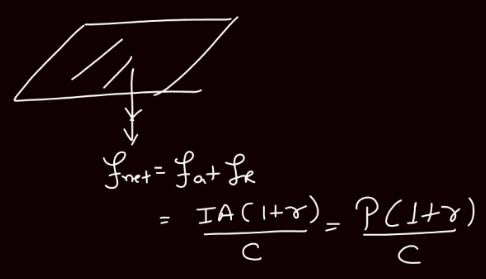 f_net = f_a + f_R
= IA(1+r)/C = P(1+r)/C